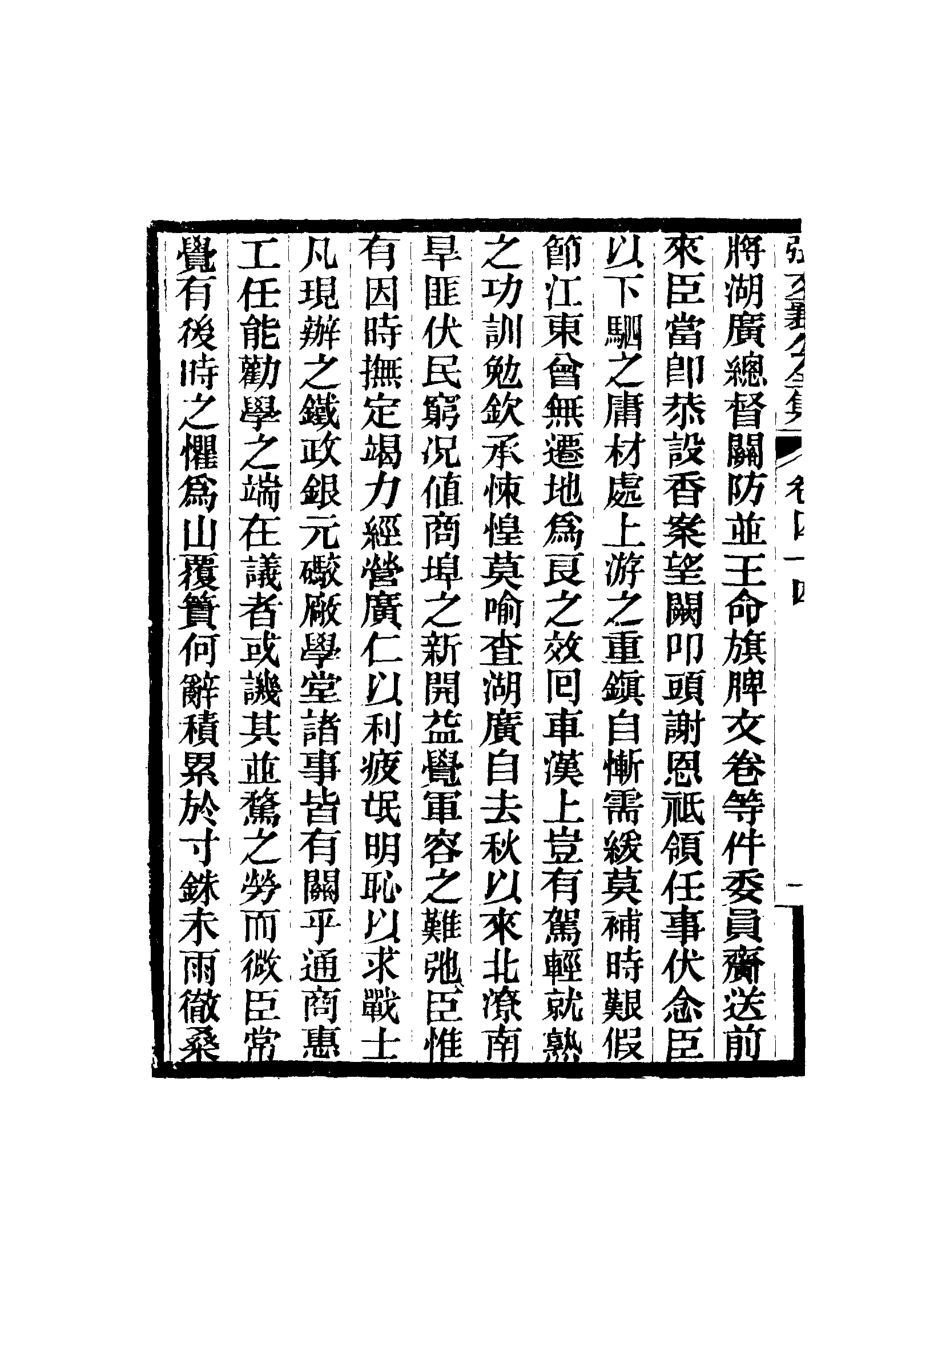 張文襄公全集 卷四十四 一
將湖廣總督關防並王命旗牌文卷等件委員齎送前
來臣當卽恭設香案望闕叩頭謝恩祗領任事伏念臣
以下駟之庸材處上游之重鎭自慚需緩莫補時艱假
節江東曾無遷地爲良之效回車漢上豈有駕輕就熟
之功訓勉欽承悚惶莫喻查湖廣自去秋以來北潦南
旱匪伏民窮况値商埠之新開益覺軍容之難弛臣惟
有因時撫定竭力經營廣仁以利疲氓明恥以求戰士
凡現辦之鐵政銀元礮廠學堂諸事皆有關乎通商惠
工任能勸學之端在議者或譏其並騖之勞而微臣常
覺有後時之懼爲山覆簣何辭積累於寸銖未雨徹桑